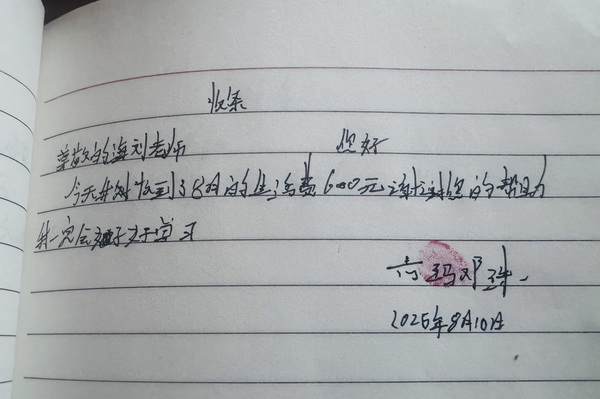 收条
尊敬的海刘老师 您好
今天我收到了8月的生活费600元谢谢您的帮助
我一定会好好学习
尕玛邓珠
2025年8月10日